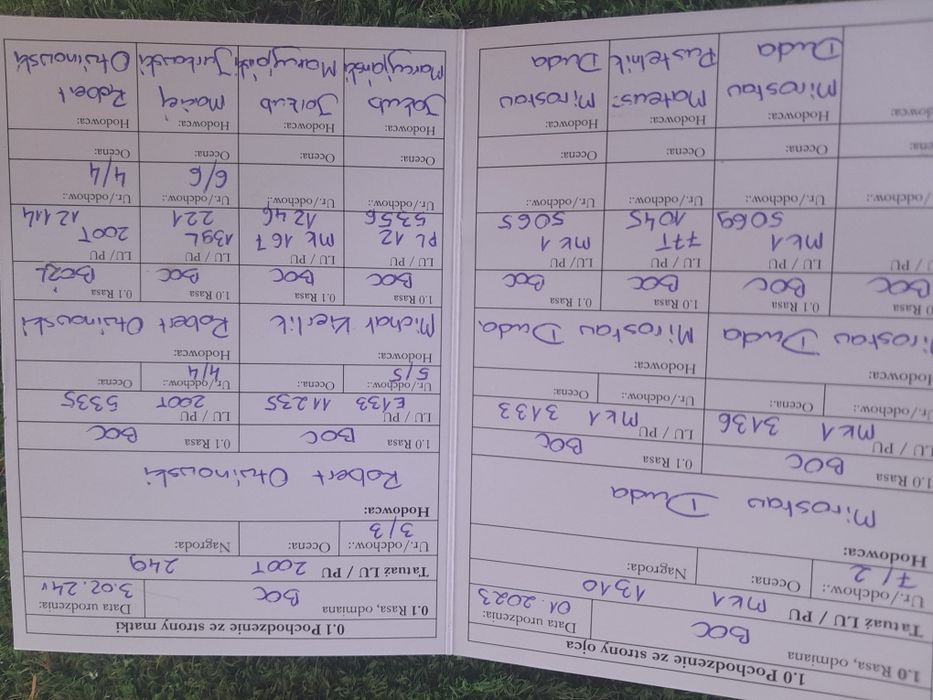 1.0 Pochodzenie ze strony ojca
1.0 Rasa, odmiana
BOC
Data urodzenia:
01.2023
Tatuaż LU / PU MK1 1310
Ur./odchow.: 7/2
Ocena:
Nagroda:
Hodowca:
Mirosław Duda
1.0 Rasa BOC
0.1 Rasa BOC
LU / PU MK1 3136
LU / PU MK1 3133
Ur./odchow.:
Ocena:
Ur./odchow.:
Ocena:
Hodowca:
Hodowca:
Mirosław Duda
Mirosław Duda
BOC
0.1 Rasa BOC
1.0 Rasa BOC
0.1 Rasa BOC
LU / PU
LU / PU
LU / PU
MK1 5069
77T 1045
MK1 5065
Ur./odchow.:
Ur./odchow.:
Ur./odchow.:
Ocena:
Ocena:
Ocena:
Hodowca:
Hodowca:
Hodowca:
Mirosław Duda
Mateusz Pustelnik
Mirosław Duda
0.1 Pochodzenie ze strony matki
0.1 Rasa, odmiana
BOC
Data urodzenia:
3.02.24r
Tatuaż LU / PU 200T 249
Ur./odchow.: 3/3
Ocena:
Nagroda:
Hodowca:
Robert Otwinowski
1.0 Rasa BOC
0.1 Rasa BOC
LU / PU E133 11235
LU / PU 200T 5335
Ur./odchow.: 5/5
Ocena:
Ur./odchow.: 4/4
Ocena:
Hodowca:
Hodowca:
Michał Kierlik
Robert Otwinowski
1.0 Rasa BOC
0.1 Rasa BOC
1.0 Rasa BOC
0.1 Rasa
LU / PU
LU / PU
LU / PU
LU / PU
PL 12 5356
MK 167 1246
139L 221
200T 12114
Ur./odchow.:
Ur./odchow.:
Ur./odchow.: 6/6
Ur./odchow.: 4/4
Ocena:
Ocena:
Ocena:
Ocena:
Hodowca:
Hodowca:
Hodowca:
Hodowca:
Jakub
Jakub
Maciej Jurkowski
Robert Otwinowski